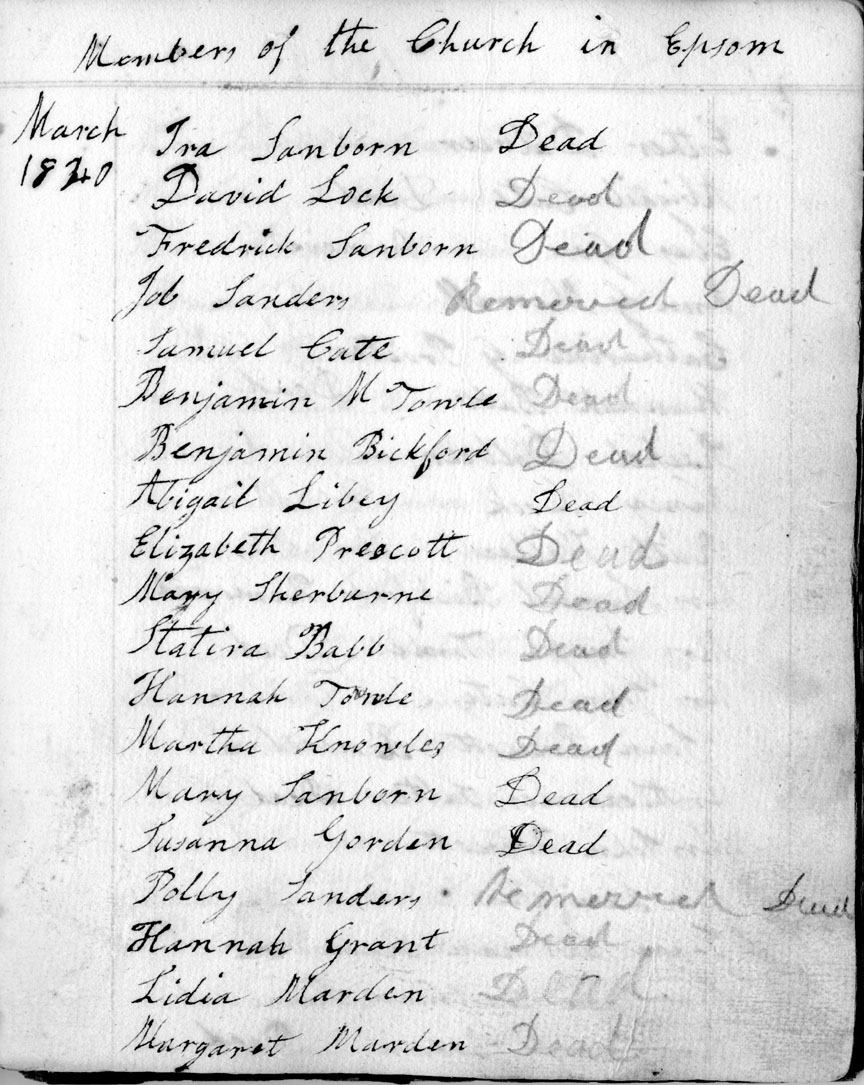 Members of the Church in Epsom
March
1840
Ira Sanborn Dead
David Lock Dead
Fredrick Sanborn Dead
Job Sanders Remerved Dead
Samuel Cate Dead
Benjamin M Towle Dead
Benjamin Bickford Dead
Abigail Libey Dead
Elizabeth Prescott Dead
Mary Sherburne Dead
Statira Babb Dead
Hannah Towle Dead
Martha Knowles Dead
Mary Sanborn Dead
Susanna Gorden Dead
Polly Sanders Remerved Dead
Hannah Grant Dead
Lidia Marden Dead
Margaret Marden Dead